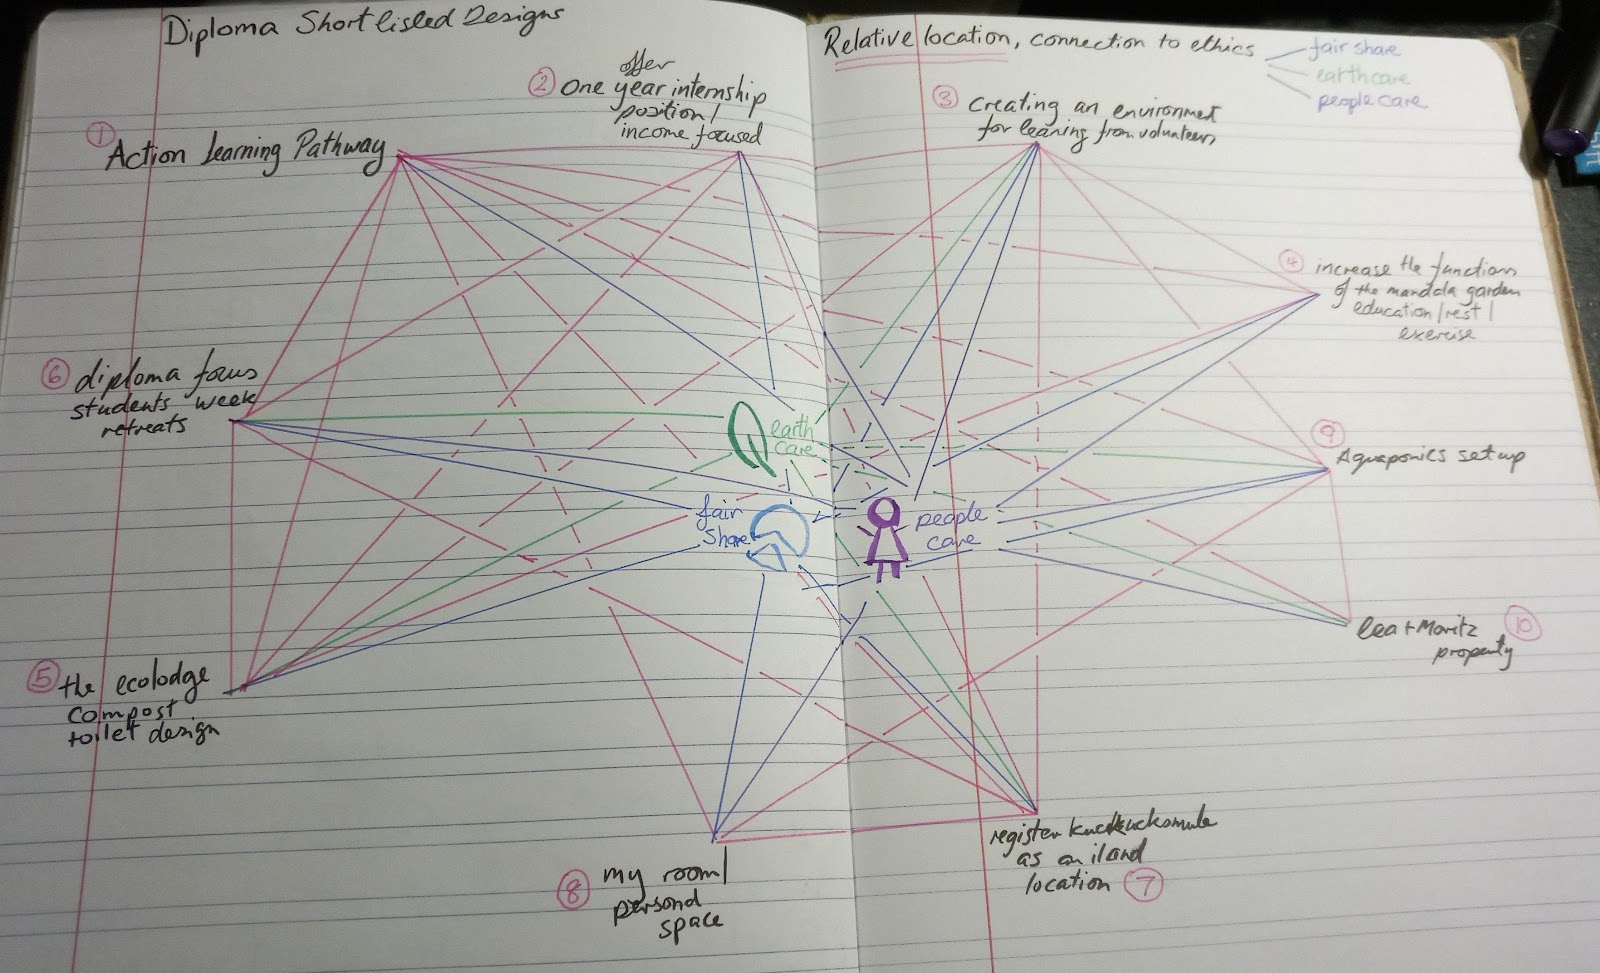 Diploma Shortlisted Designs
Relative location, connection to ethics
fair share
earthcare
people care
① Action Learning Pathway
offer
② One year internship
position/
income focused
③ creating an environment
for learning from volunteers
④ increase the functions
of the mandala garden
education/rest/
exercise
⑥ diploma focus
students week
retreats
earth
care
fair
share
people
care
⑨
Aquaponics set up
lea + Moritz ⑩
property
⑤ the ecolodge
compost
toilet design
register
as an iland
location ⑦
⑧ my room/
personal
space